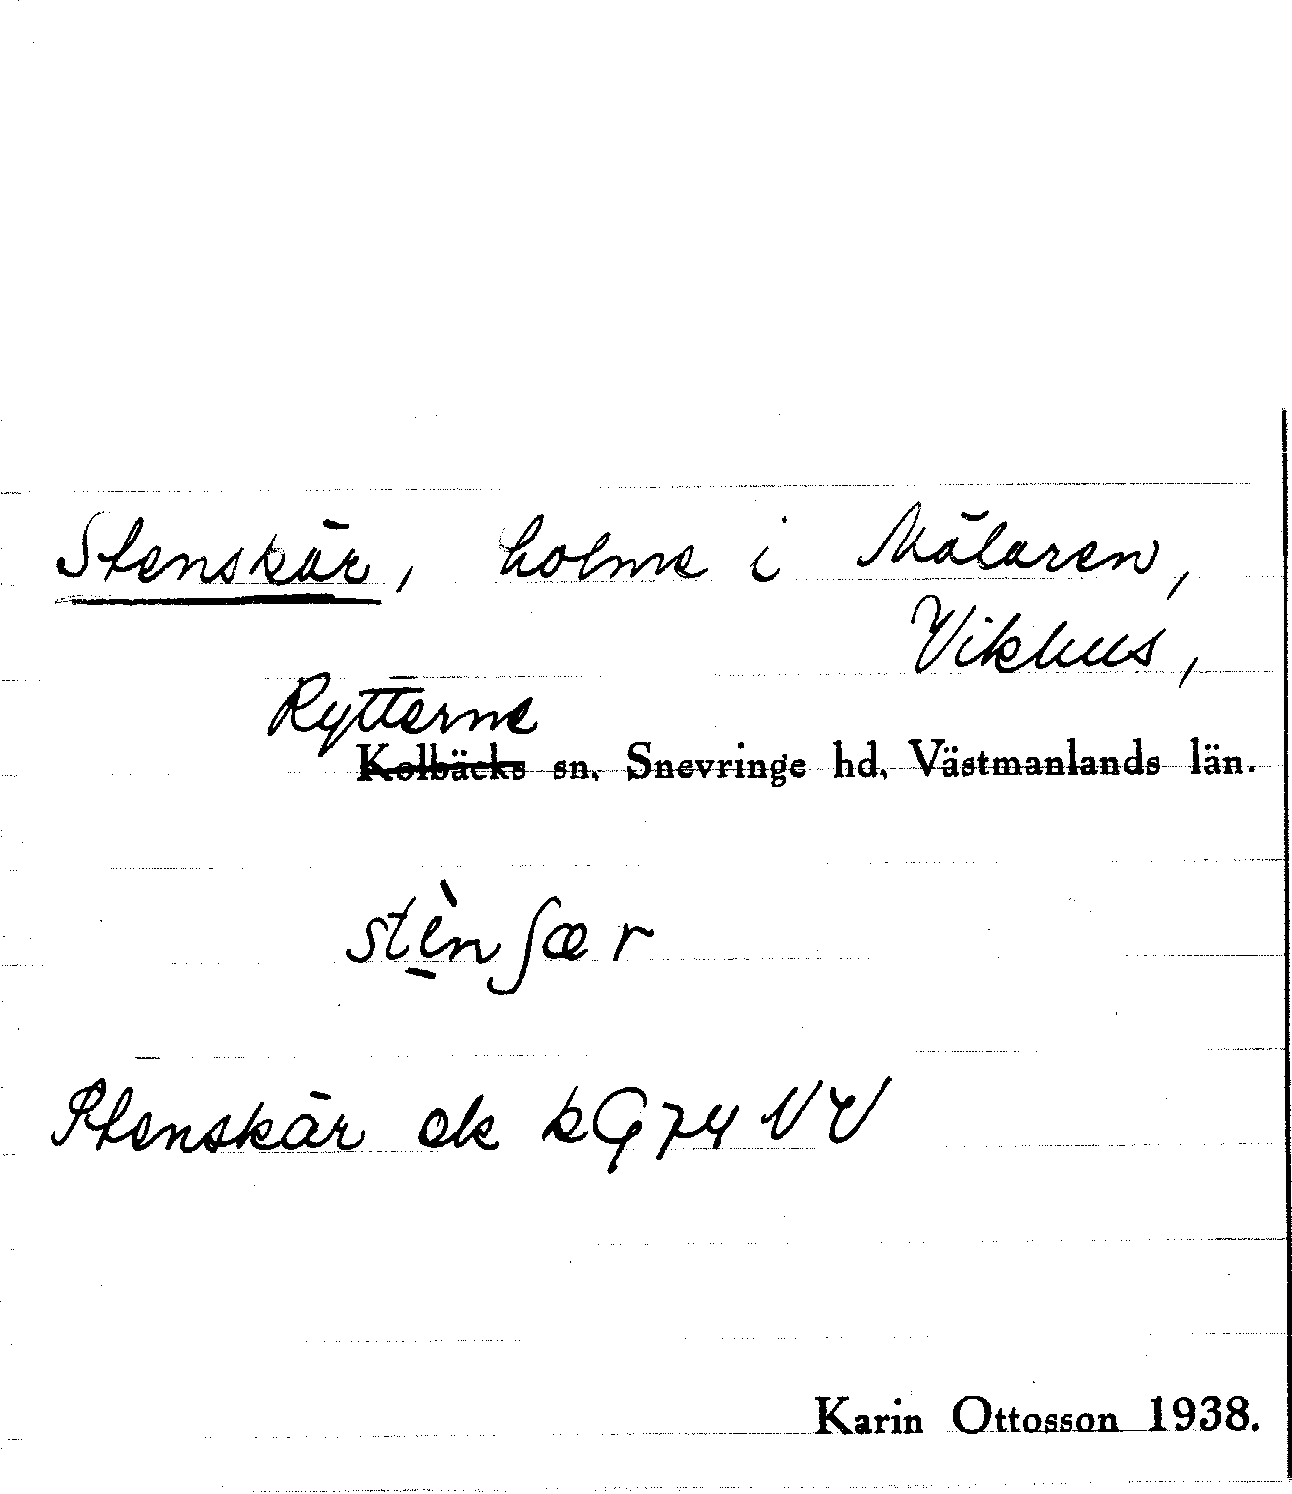 Stenskär, holme i Mälaren,
Vikhus,
Rytterne
Kolbäcks sn, Snevringe hd, Västmanlands län.
stè̠nʃær
Stenskär ek kG 74 NV
Karin Ottosson 1938.